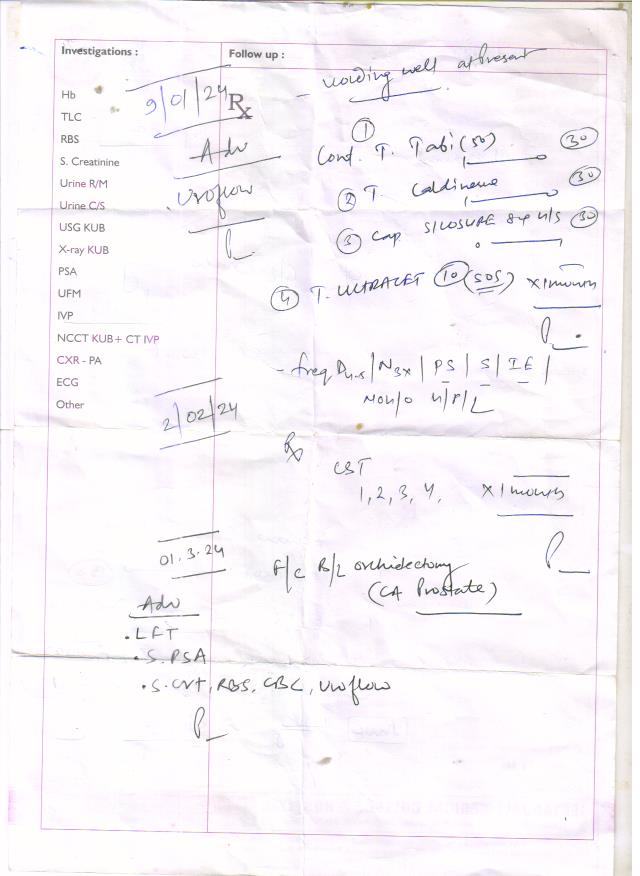 Investigations :
Follow up :
Hb
TLC
RBS
S. Creatinine
Urine R/M
Urine C/S
USG KUB
X-ray KUB
PSA
UFM
IVP
NCCT KUB + CT IVP
CXR - PA
ECG
Other
9/01/24
Adv
Uroflow
Rx
- voiding well at present
① Cont. T. Tabi (50) 30
② T. 30
③ Cap S/LOSURE 8+4 H/S 30
④ T. ULTRACET 10 (SOS) x 1 month
2/02/24
- freq D | N3x | PS | S | IE |
Rx
CST
1, 2, 3, 4, x 1 month
01.3.24
F/C B/L orchidectomy
(CA Prostate)
Adv
. LFT
. S. PSA
. S. Crt, RBS, CBC, Uroflow